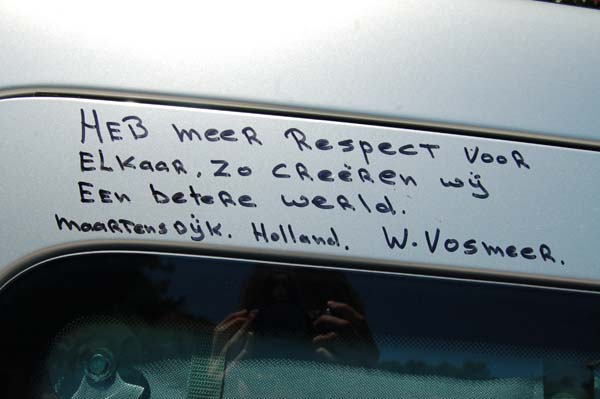 HEB MEER RESPECT VOOR
ELKAAR. ZO CREËREN WIJ
EEN betere wereld.
MAARTENSDIJK. Holland. W. VOSMEER.